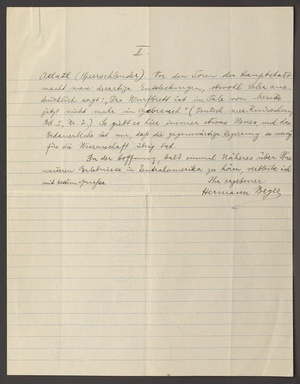 II
Atlatl (Speerschleuder). Vor den Toren der Hauptstadt
macht man derartige Entdeckungen, obwohl Seler aus-
drücklich sagt: "Das Wurfbrett ist im Tale von Mexiko
jetzt nicht mehr im Gebrauch" (Deutsch von
Bd I, Nr. 2.) So gibt es hier immer etwas Neues und das
Bedauerliche ist nur, daß die gegenwärtige Regierung so wenig
für die Wissenschaft übrig hat.
In der Hoffnung, bald einmal Näheres über Ihre
weiteren Erlebnisse in Zentralamerika zu hören, verbleibe ich
mit besten Grüßen
Ihr ergebener
Hermann Beyer